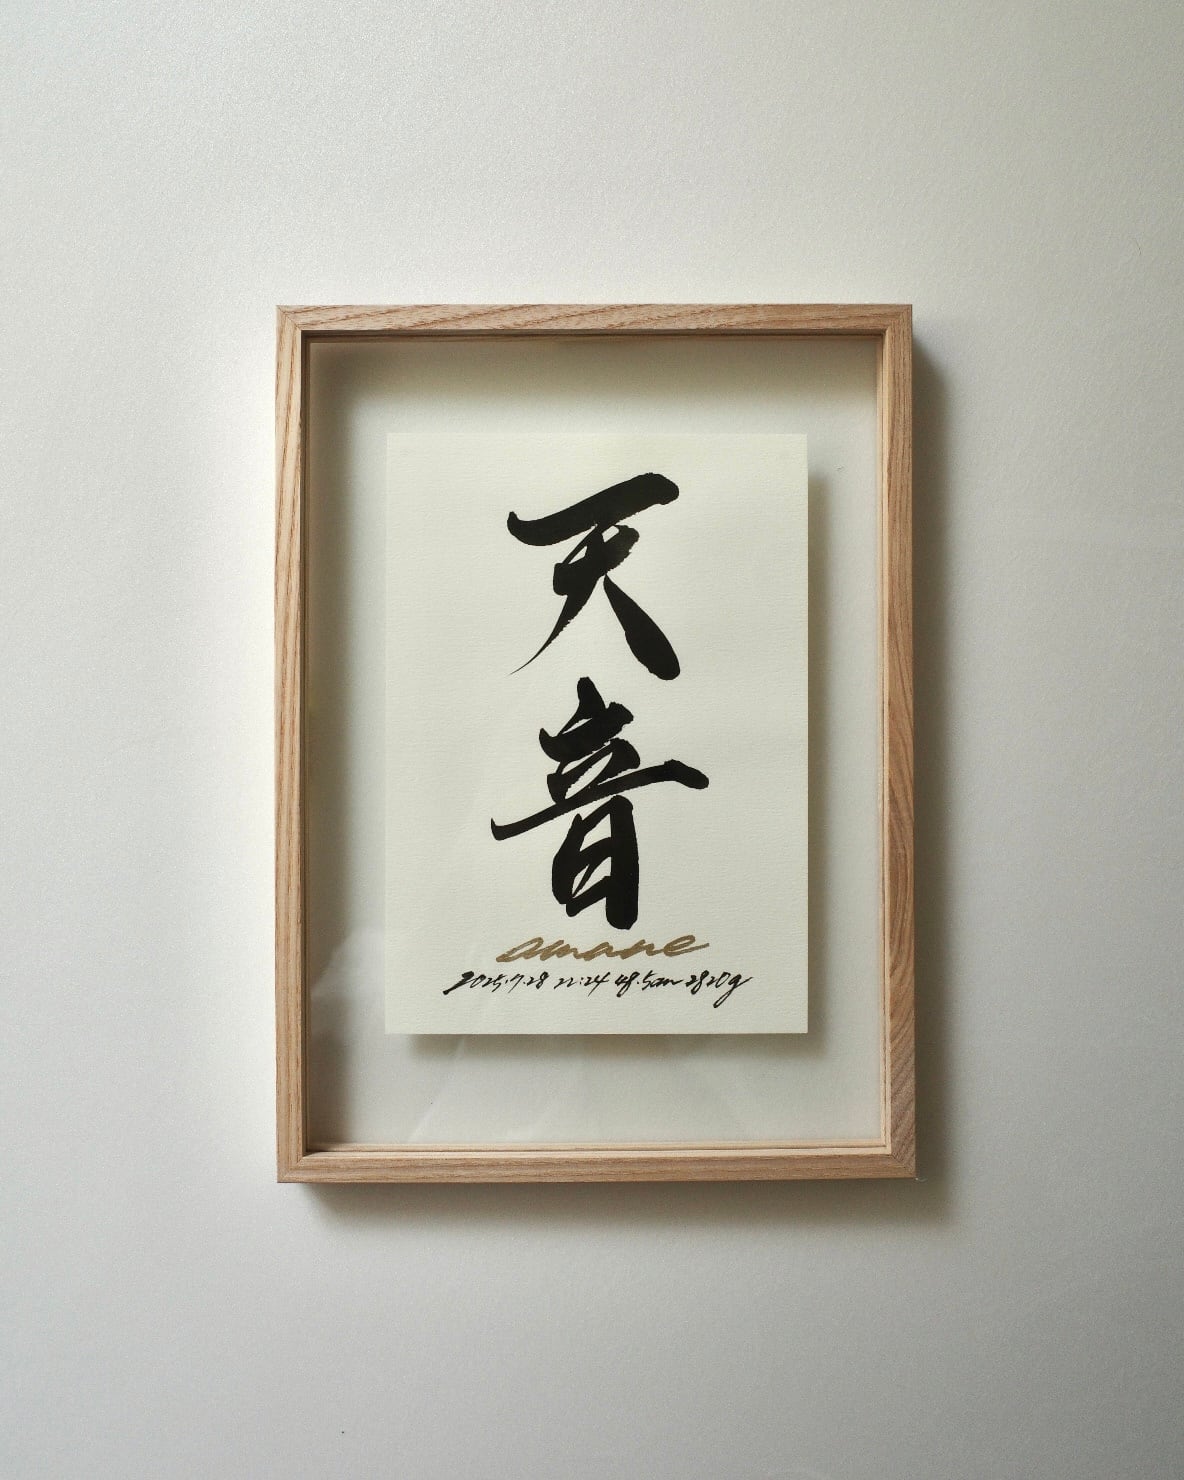 天音
amane
2025.7.28 22:24 48.5cm 2820g